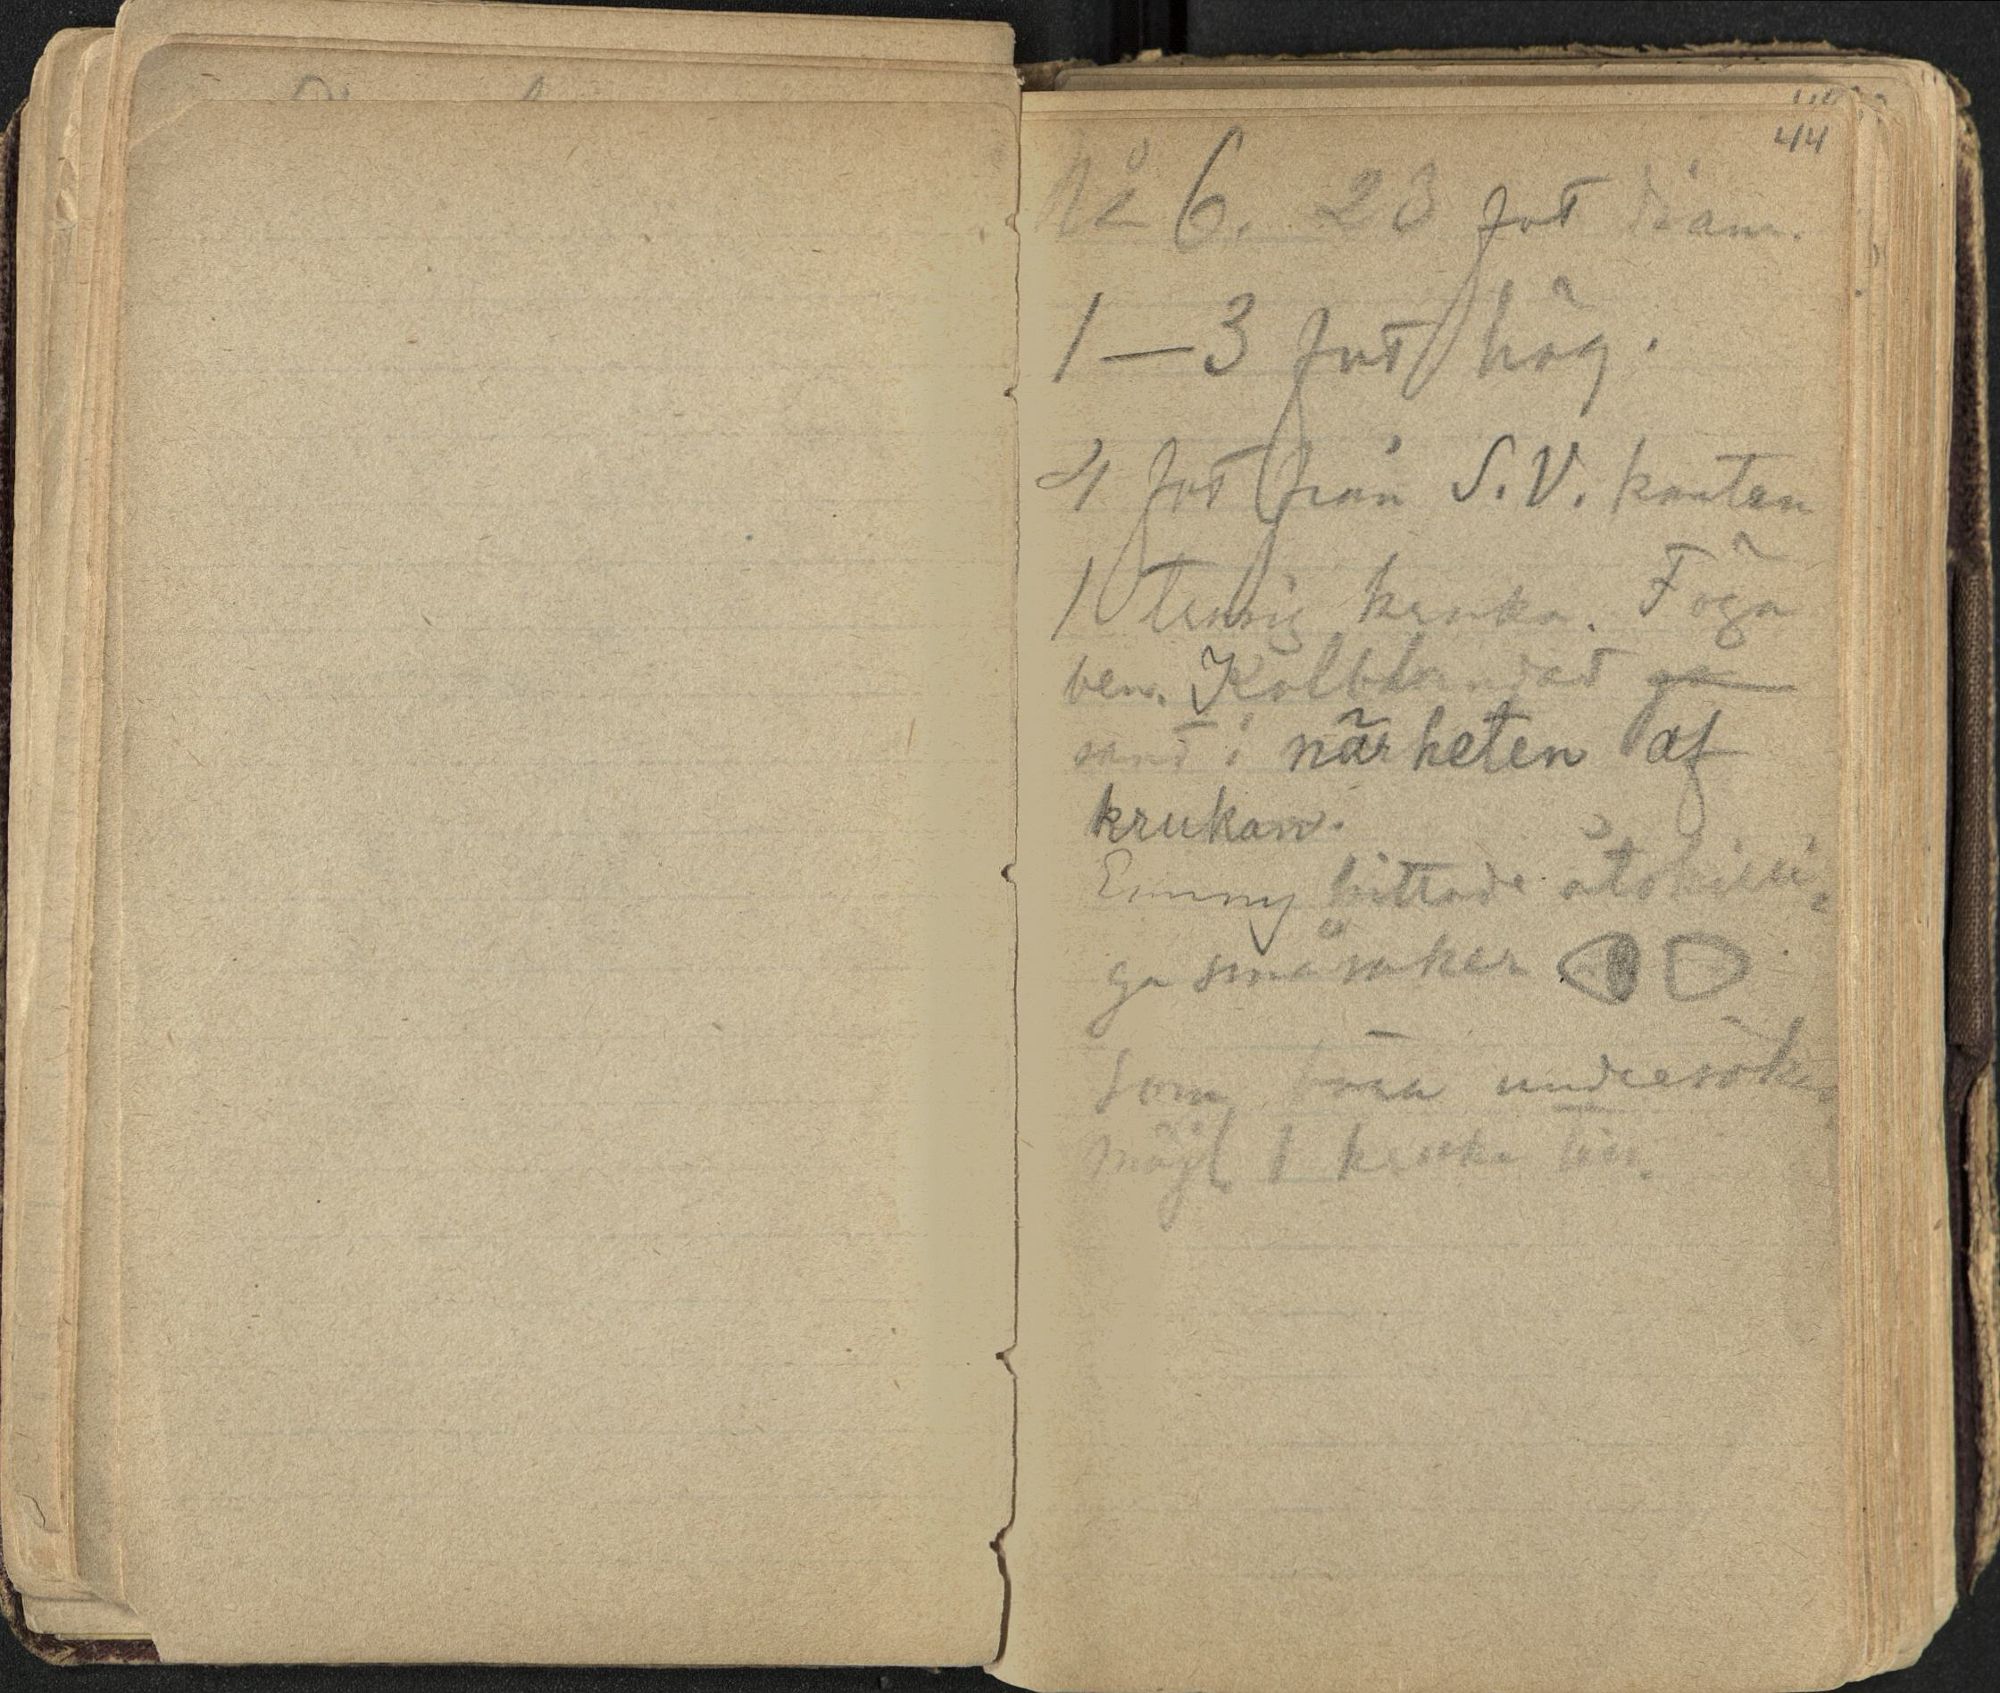 44
No 6. 23 fot diam.
1—3 fot hög.
4 fot från S.V. kanten
1 trasig kruka. Föga
ben. Kolblandad
sand i närheten af
krukan.
Emmy hittade åtskilli-
ga småsaker
Som böra undersökas
Möjl. 1 kruka